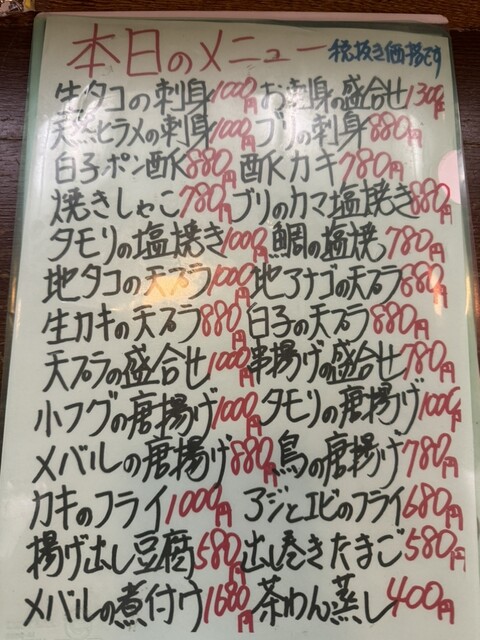 本日のメニュー 税抜き価格です
生タコの刺身1000円 お刺身の盛合せ1300円
天然ヒラメの刺身1000円 ブリの刺身880円
白子ポン酢880円 酢カキ780円
焼きしゃこ780円 ブリのカマ塩焼き880円
タモリの塩焼き1000円 鯛の塩焼780円
地タコの天プラ1000円 地アナゴの天プラ880円
生カキの天プラ880円 白子の天プラ880円
天プラの盛合せ1000円 串揚げの盛合せ780円
小フグの唐揚げ1000円 タモリの唐揚げ1000円
メバルの唐揚げ880円 鳥の唐揚げ780円
カキのフライ1000円 アジとエビのフライ680円
揚げ出し豆腐580円 出し巻きたまご580円
メバルの煮付け1680円 茶わん蒸し400円